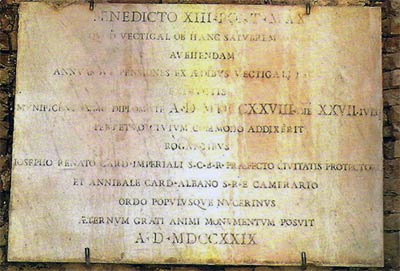 BENEDICTO XIII·PONT·MAX
VECTIGAL OB HANC SALVBREM
AVEHENDAM
PENSIONES EX ÆDIBVS VECTIGALI
DIPLOMATE A·D·MDCCXXVIII· XXVII·IVLII
PERPETVO CIVIVM COMMODO ADDIXERIT
ROGANTIBVS
IOSEPHO RENATO CARD·IMPERIALI S·C·B·R·PRÆFECTO CIVITATIS PROTECTOR
ET ANNIBALE CARD·ALBANO S·R·E CAMERARIO
ORDO POPVLVSQVE NVCERINVS
ÆTERNVM GRATI ANIMI MONVMENTVM POSVIT
A·D·MDCCXXIX